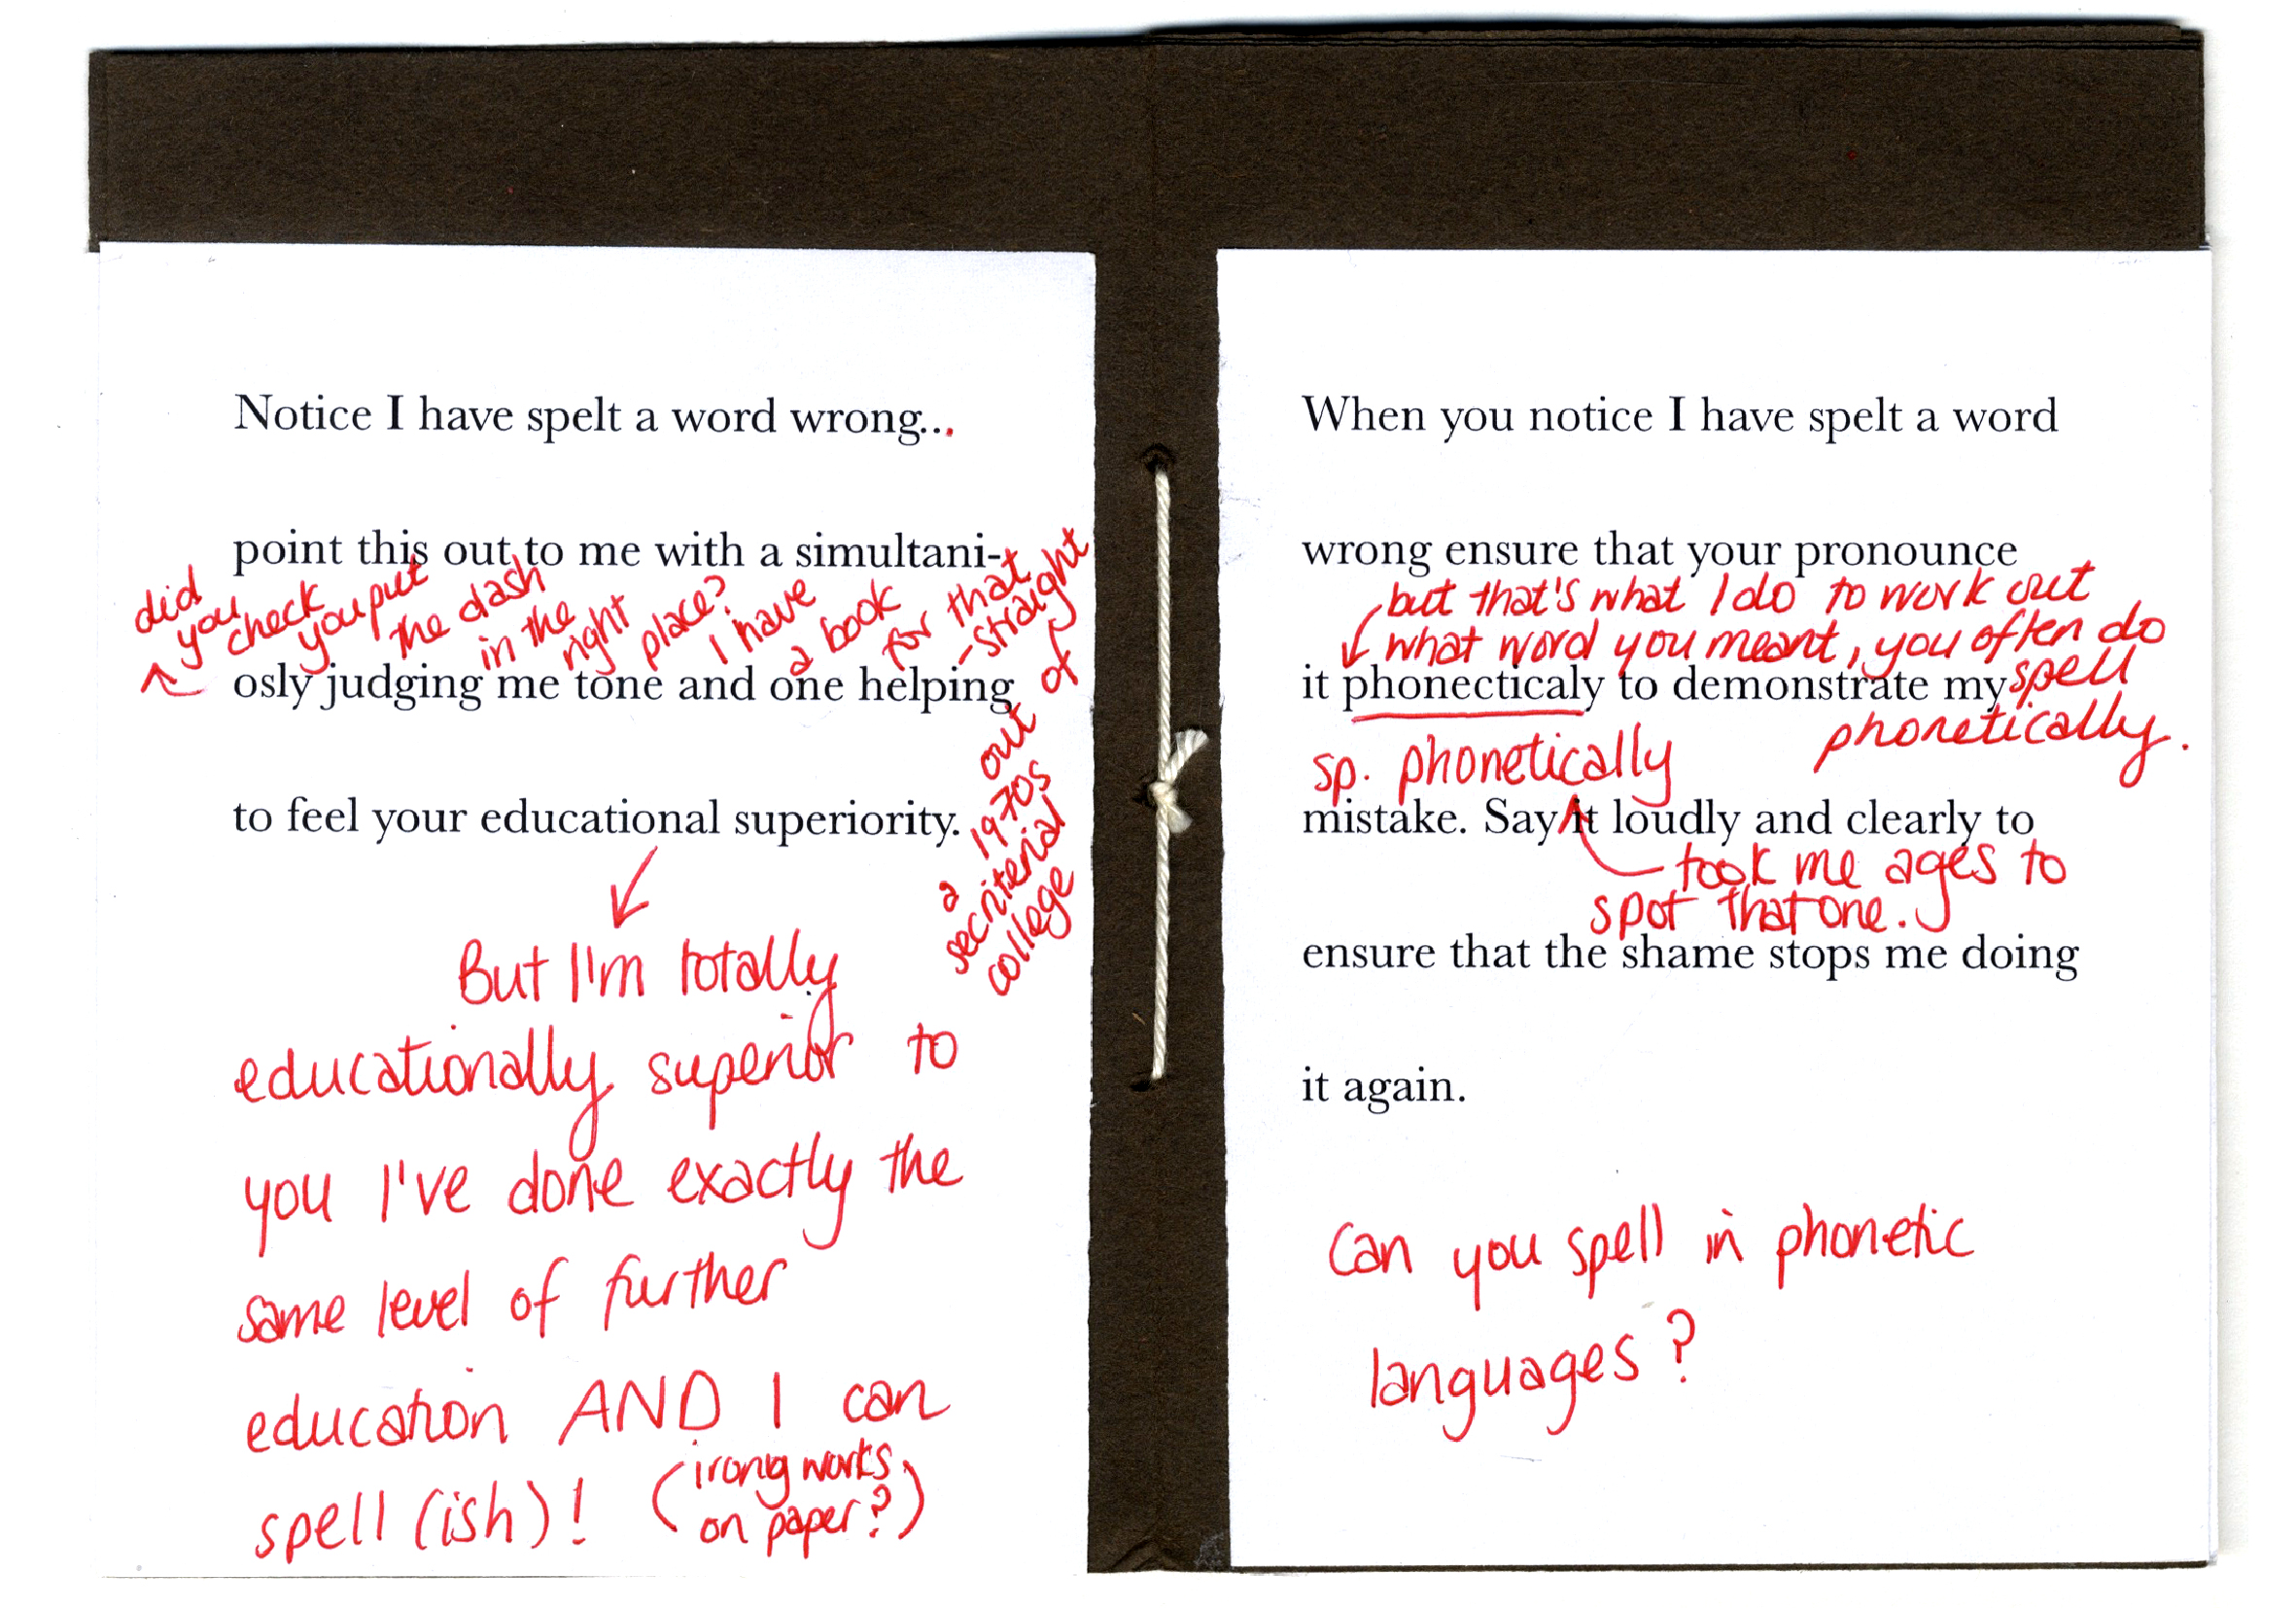 Notice I have spelt a word wrong...
point this out to me with a simultani-
did you check you put the dash in the right place? I have a book for that - straight out of a 1970s secriterial college
osly judging me tone and one helping
to feel your educational superiority.
But I'm totally
educationally superior to
you I've done exactly the
same level of further
education AND I can
spell (ish)! (irony works
on paper?)
When you notice I have spelt a word
wrong ensure that your pronounce
but that's what I do to work out
what word you meant, you often do
spell
phonetically.
it phonecticaly to demonstrate my
sp. phonetically
mistake. Say it loudly and clearly to
took me ages to
spot that one.
ensure that the shame stops me doing
it again.
Can you spell in phonetic
languages?